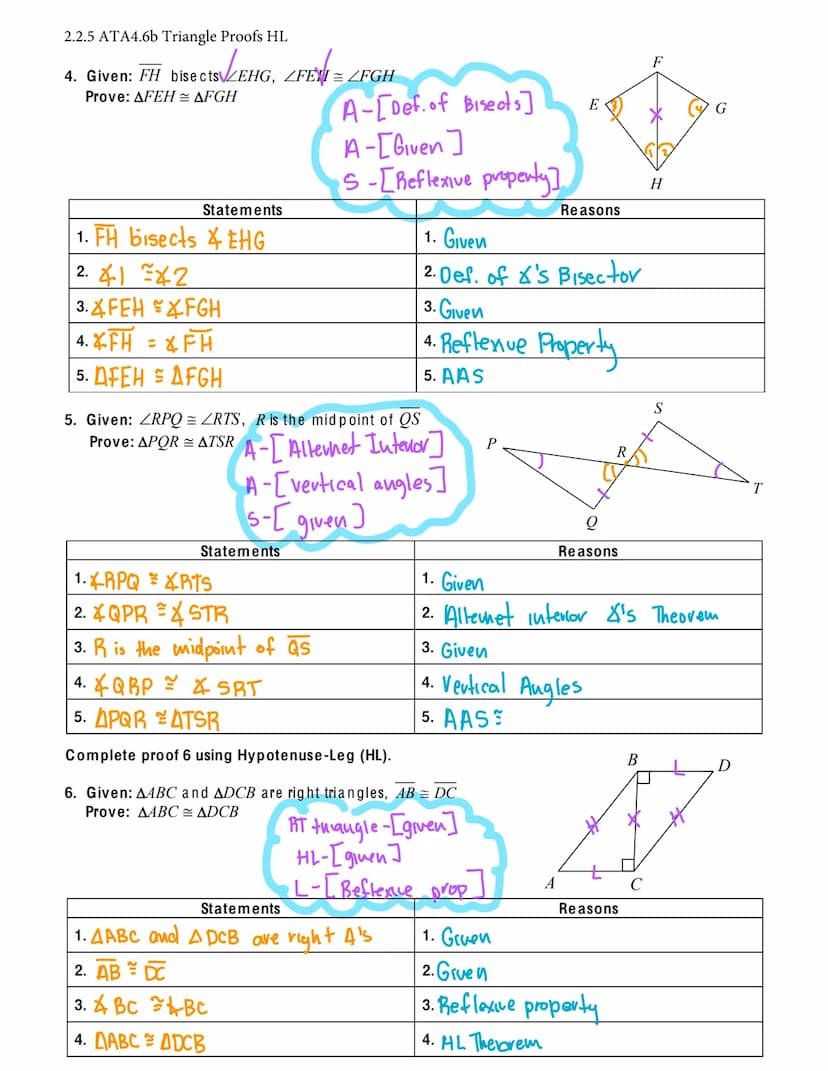 2.2.5 ATA4.6b Triangle Proofs HL
4. Given: FH bisects ∠EHG, ∠FEH ≅ ∠FGH
Prove: ΔFEH ≅ ΔFGH
A-[Def. of Bisects]
A-[Given]
S-[Reflexive property]
F
E
3
4
G
1 2
H
Statements Reasons
1. FH bisects ∡ EHG 1. Given
2. ∡1 ≅ ∡2 2. Def. of ∡'s Bisector
3. ∡FEH ≅ ∡FGH 3. Given
4. ∡FH = ∡FH 4. Reflexive Property
5. ΔFEH ≅ ΔFGH 5. AAS
5. Given: ∠RPQ ≅ ∠RTS, R is the midpoint of QS
Prove: ΔPQR ≅ ΔTSR
A-[Alternet Interior]
A-[vertical angles]
S-[given]
S
P
R
T
Q
Statements Reasons
1. ∡RPQ ≅ ∡RTS 1. Given
2. ∡QPR ≅ ∡STR 2. Alternet interior ∡'s Theorem
3. R is the midpoint of QS 3. Given
4. ∡QRP ≅ ∡SRT 4. Vertical Angles
5. ΔPQR ≅ ΔTSR 5. AAS ≅
Complete proof 6 using Hypotenuse-Leg (HL).
6. Given: ΔABC and ΔDCB are right triangles, AB ≅ DC
Prove: ΔABC ≅ ΔDCB
RT triangle-[given]
HL-[given]
L-[Reflexive prop]
B
L
D
H
H
A
L
C
Statements Reasons
1. ΔABC and ΔDCB are right Δ's 1. Given
2. AB ≅ DC 2. Given
3. ∡BC ≅ ∡BC 3. Reflexive property
4. ΔABC ≅ ΔDCB 4. HL Theorem